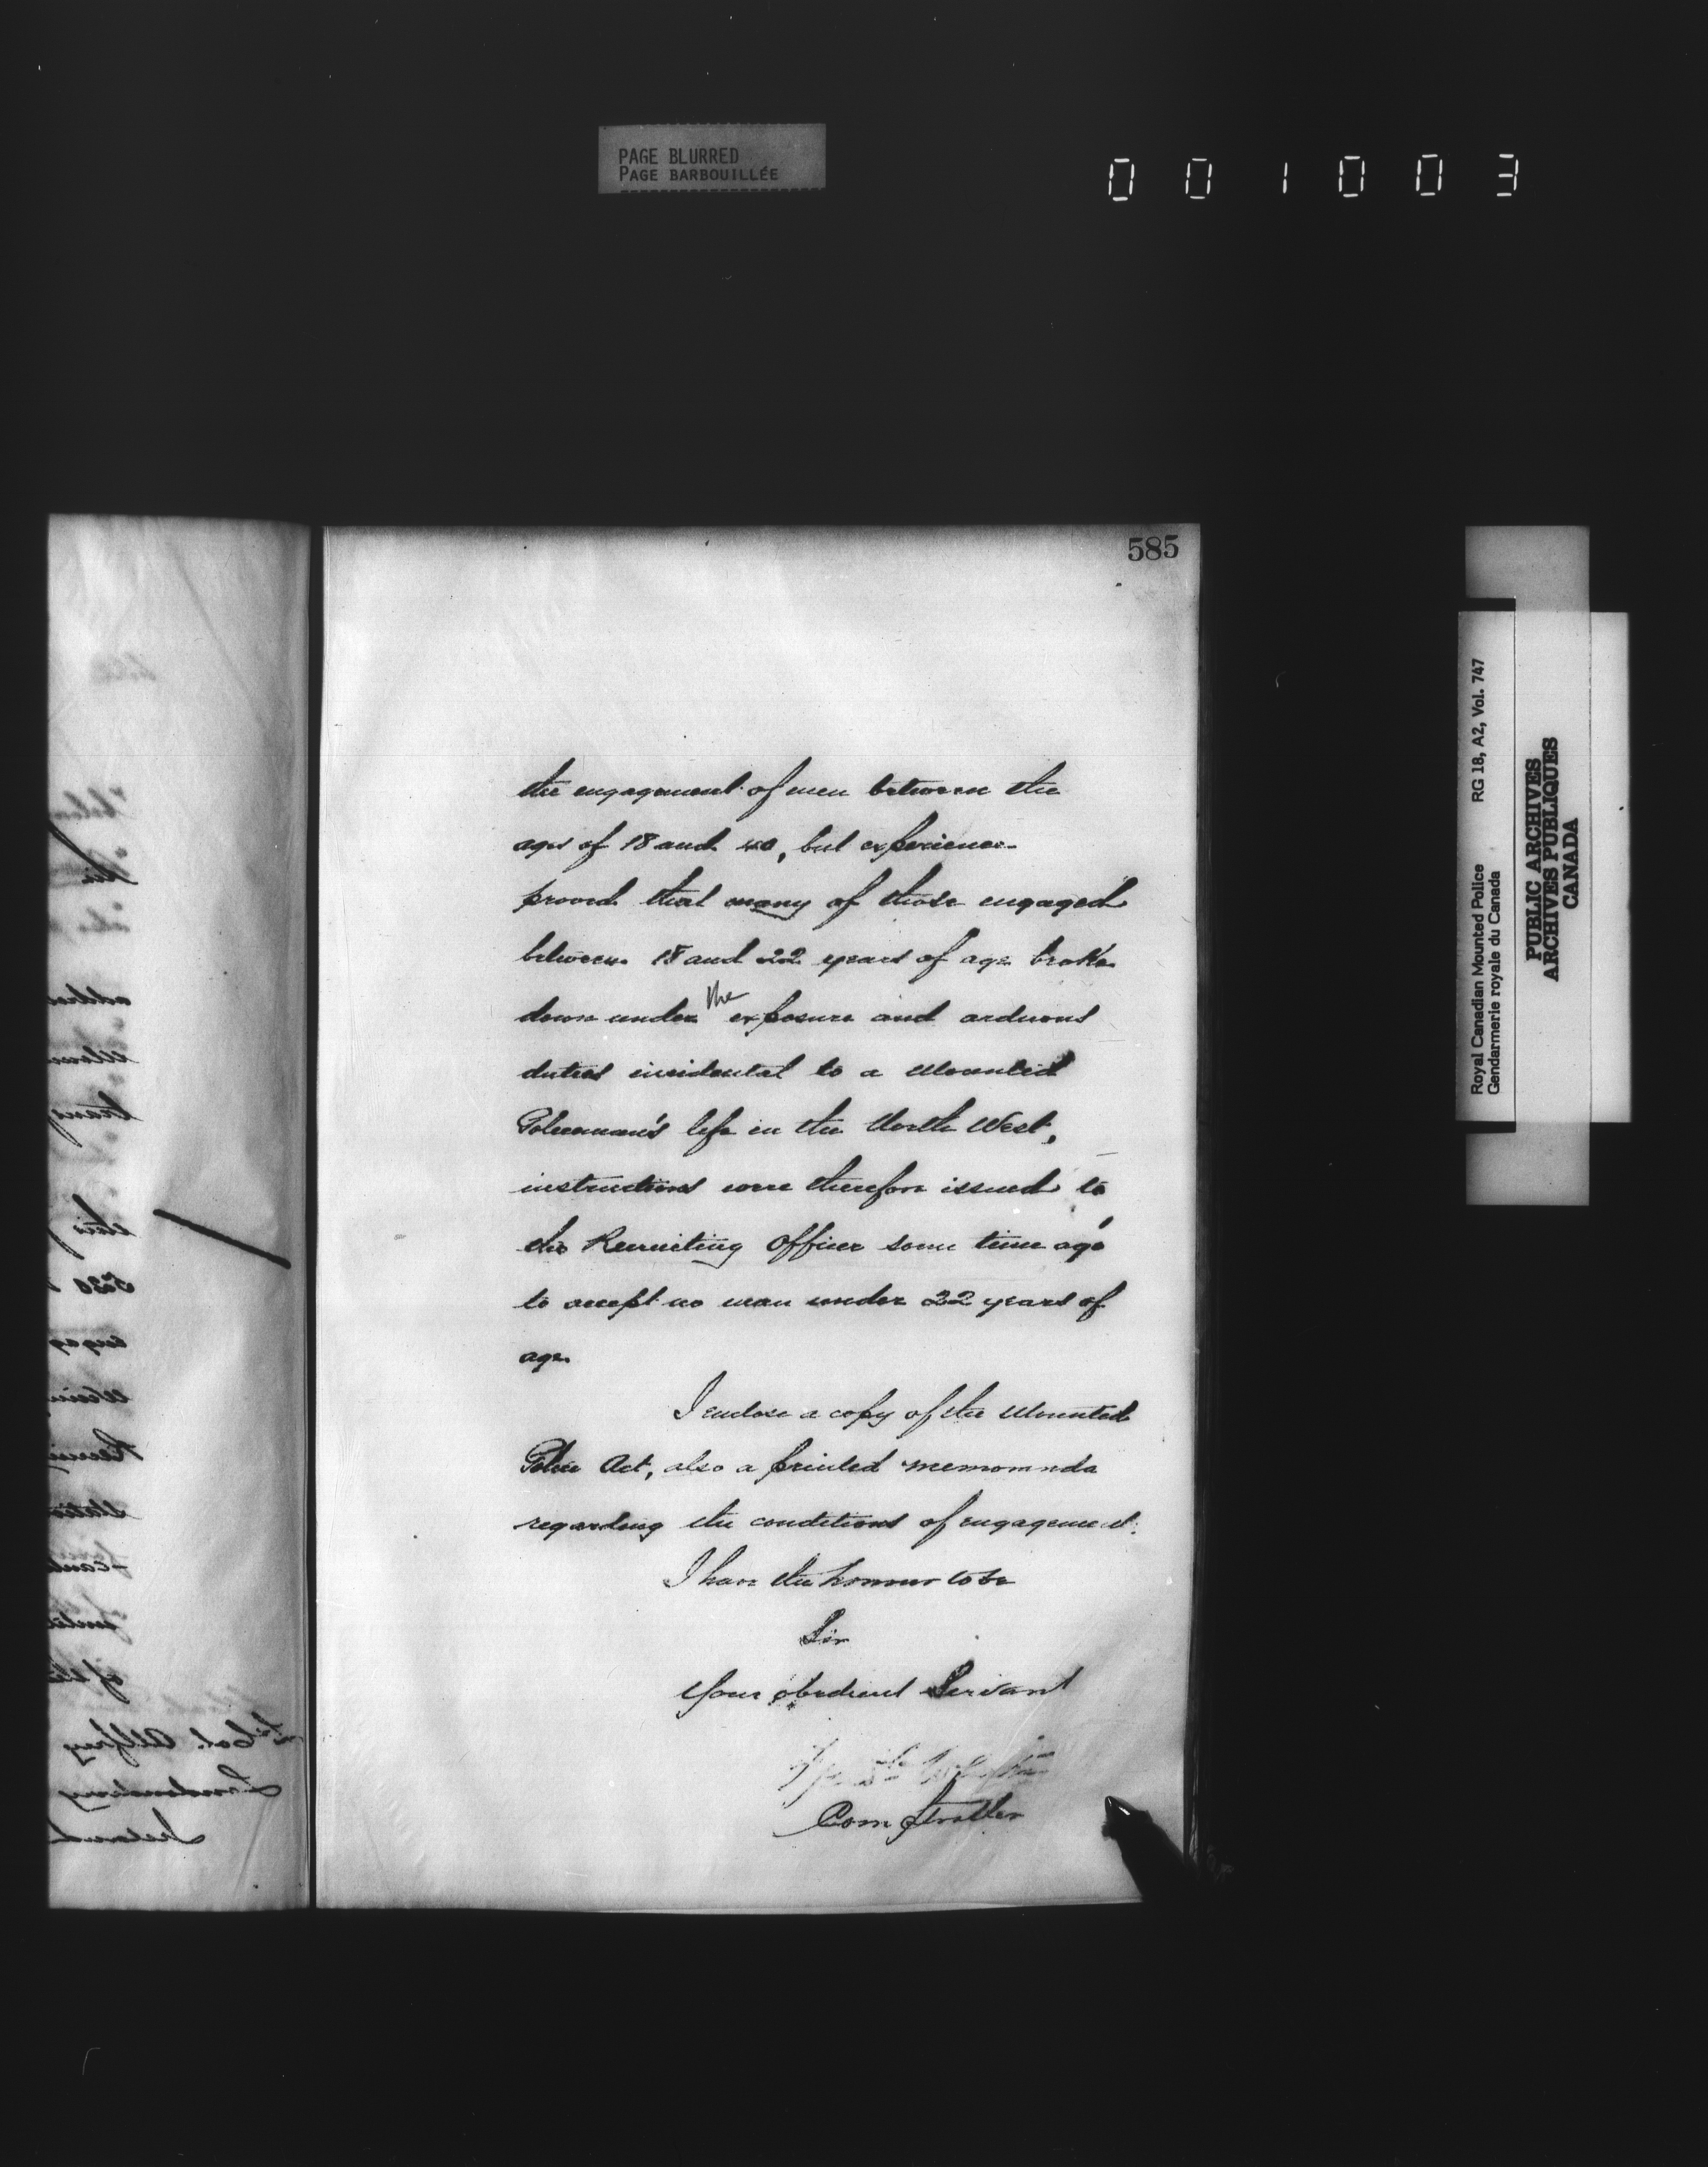 PAGE BLURRED
PAGE BARBOUILLÉE
001003
585
the engagement of men between the
ages of 18 and 40, but experience
proved that many of those engaged
between 18 and 22 years of age broke
down under the exposure and arduous
duties incidental to a Mounted
Policeman's life in the North West,
instructions were therefore issued to
the Recruiting Officer some time ago
to accept no man under 22 years of
age.
I enclose a copy of the Mounted
Police Act, also a printed memoranda
regarding the conditions of engagement.
I have the honour to be
Sir
Your obedient Servant
Comptroller
Lt. Col. Allfrey
Londonderry
Ireland
Royal Canadian Mounted Police RG 18, A2, Vol. 747
Gendarmerie royale du Canada
PUBLIC ARCHIVES
ARCHIVES PUBLIQUES
CANADA